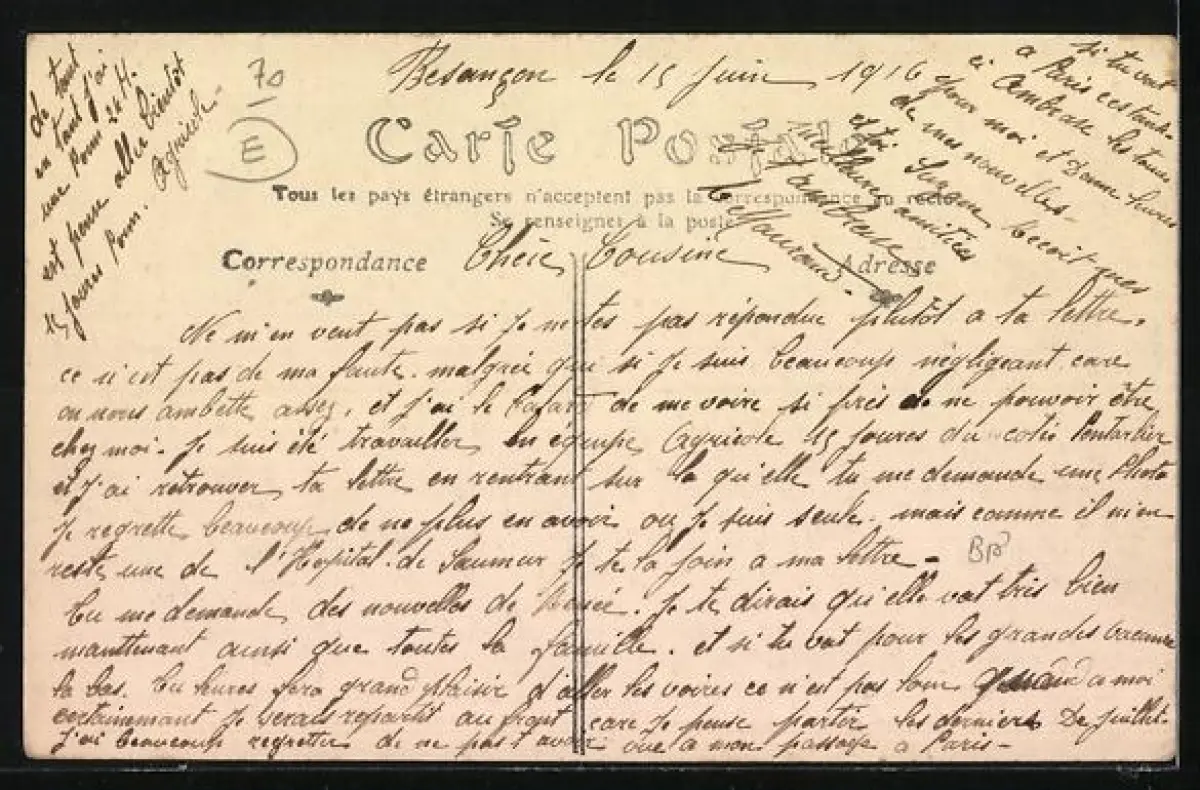 Besançon le 15 Juin 1916
70
E
Carte Postale
Tous les pays étrangers n'acceptent pas la correspondance au recto
Se renseigner à la poste
Correspondance
Adresse
Chère Cousine
Ne m'en veut pas si Je m tes pas répondue plutôt a ta lettre.
ce n'est pas de ma faute. malgrée qui si Je suis beaucoup négligeant care
on nous ambette assez. et J'ai le Cafard de me voire si près de ne pouvoir être
chez moi. Je suis été travailler en équipe Agricole 15 Joures du cotés Pontarlier
et J'ai retrouver ta lettre en rentrant sur la qu'elle tu me demande une Photo
Je regrette beaucoup de ne plus en avoir ou Je suis seule. mais comme il m'en
reste une de l'Hopital de Saumur Je te la join a ma lettre -
BP
Tu me demande des nouvelles de Renée. Je te dirais qu'elle vat très bien
manttenant ainsi que toutes la famille. et si tu vat pour les grandes vacance
la bas. Tu leures fera grand plaisir d'aller les voires ce n'est pas quand a moi
certainnement Je serais repartit au front care Je pense partir les derniers De Juillet.
J'ai beaucoup regretter de ne pas t'avoir vue a mon passage a Paris -
de tant
en tant J'ai
une Perm 24 H.
est pense aller bientôt
15 Joures Perm. Agricole -
si tu vat
a Paris
Ambrase les tous
pour moi et Donne leures
de mes nouvelles -
et toi Suzane recoit mes
meilleures amitiés